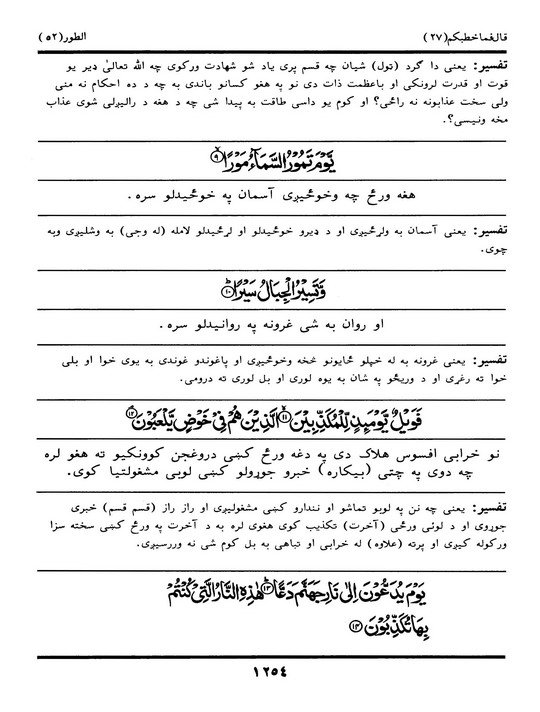 قال فما خطبكم (٢٧) الطور (٥٢)
تفسیر: یعنی دا گرد (ټول) شیان چه قسم پری یاد شو شهادت ورکوی چه الله تعالیٰ ډیر یو
قوت او قدرت لرونکی او باعظمت ذات دی نو په هغو کسانو باندی به چه د ده احکام نه منی
ولی سخت عذابونه نه راځی؟ او کوم یو داسی طاقت به پیدا شی چه د هغه د رالیږلی شوی عذاب
مخه ونیسی؟.
يَّوْمَ تَمُوْرُ السَّمَآءُ مَوْرًا ۙ﴿۹﴾
هغه ورځ چه وخوځیږی آسمان په خوځیدلو سره.
تفسیر: یعنی آسمان به ولړځیږی او د ډیرو خوځیدلو او لړځیدلو لامله (له وجی) به وشلیږی وبه
چوی.
وَّتَسِيْرُ الْجِبَالُ سَيْرًا ؕ﴿۱۰﴾
او روان به شی غرونه په روانیدلو سره.
تفسیر: یعنی غرونه به له خپلو ځایونو څخه وخوځیږی او پاغوندو غوندی به یوی خوا او بلی
خوا ته رغړی او د وریځو په شان به یوه لوری او بل لوری ته درومی.
فَوَيْلٌ يَّوْمَئِذٍ لِّلْمُكَذِّبِيْنَ ۙ﴿۱۱﴾ الَّذِيْنَ هُمْ فِيْ خَوْضٍ يَّلْعَبُوْنَ ۘ﴿۱۲﴾
نو خرابی افسوس هلاک دی په دغه ورځ کښی دروغجن کوونکیو ته هغو لره
چه دوی په چتی (بیکاره) خبرو جوړولو کښی لوبی مشغولتیا کوی.
تفسیر: یعنی چه نن په لوبو تماشو او نندارو کښی مشغولیږی او راز راز (قسم قسم) خبری
جوړوی او د لوئی ورځی (آخرت) تکذیب کوی هغوی لره به د آخرت په ورځ کښی سخته سزا
ورکوله کیږی او پرته (علاوه) له خرابی او تباهی به بل کوم شی نه وررسیږی.
يَوْمَ يُدَعُّوْنَ اِلٰى نَارِ جَهَنَّمَ دَعًّا ؕ﴿۱۳﴾ هٰذِهِ النَّارُ الَّتِيْ كُنْتُمْ
بِهَا تُكَذِّبُوْنَ ﴿۱۴﴾
١٢٥٤